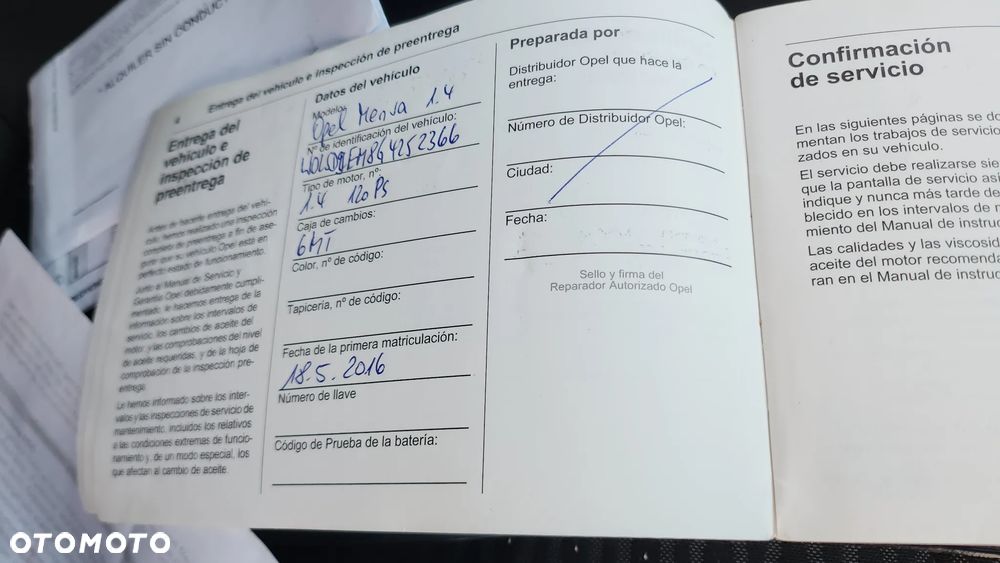 ALQUILER SIN CONDUCT
4
Entrega del vehículo e inspección de preentrega
Entrega del
vehículo e
inspección de
preentrega
Antes de hacerle entrega del vehí-
culo, hemos realizado una inspección
completa de preentrega a fin de ase-
gurar que su vehículo Opel está en
perfecto estado de funcionamiento.
Junto al Manual de Servicio y
Garantía Opel debidamente cumpli-
mentado, le hacemos entrega de la
información sobre los intervalos de
servicio, los cambios de aceite del
motor y las comprobaciones del nivel
de aceite requeridas, y de la hoja de
comprobación de la inspección pre-
entrega.
Le hemos informado sobre los inter-
valos y las inspecciones de servicio de
mantenimiento, incluidos los relativos
a las condiciones extremas de funcio-
namiento y, de un modo especial, los
que afectan al cambio de aceite.
Datos del vehículo
Modelo:
Opel 1.4
Nº de identificación del vehículo:
Tipo de motor, nº:
1.4 120 PS
Caja de cambios:
6MT
Color, nº de código:
Tapicería, nº de código:
Fecha de la primera matriculación:
18.5.2016
Número de llave
Código de Prueba de la batería:
Preparada por
Distribuidor Opel que hace la
entrega:
Número de Distribuidor Opel:
Ciudad:
Fecha:
Sello y firma del
Reparador Autorizado Opel
Confirmación
de servicio
En las siguientes páginas se do
mentan los trabajos de servicio
zados en su vehículo.
El servicio debe realizarse sie
que la pantalla de servicio así
indique y nunca más tarde de
blecido en los intervalos de m
miento del Manual de instruc
Las calidades y las viscosid
aceite del motor recomenda
ran en el Manual de instruc
OTOMOTO